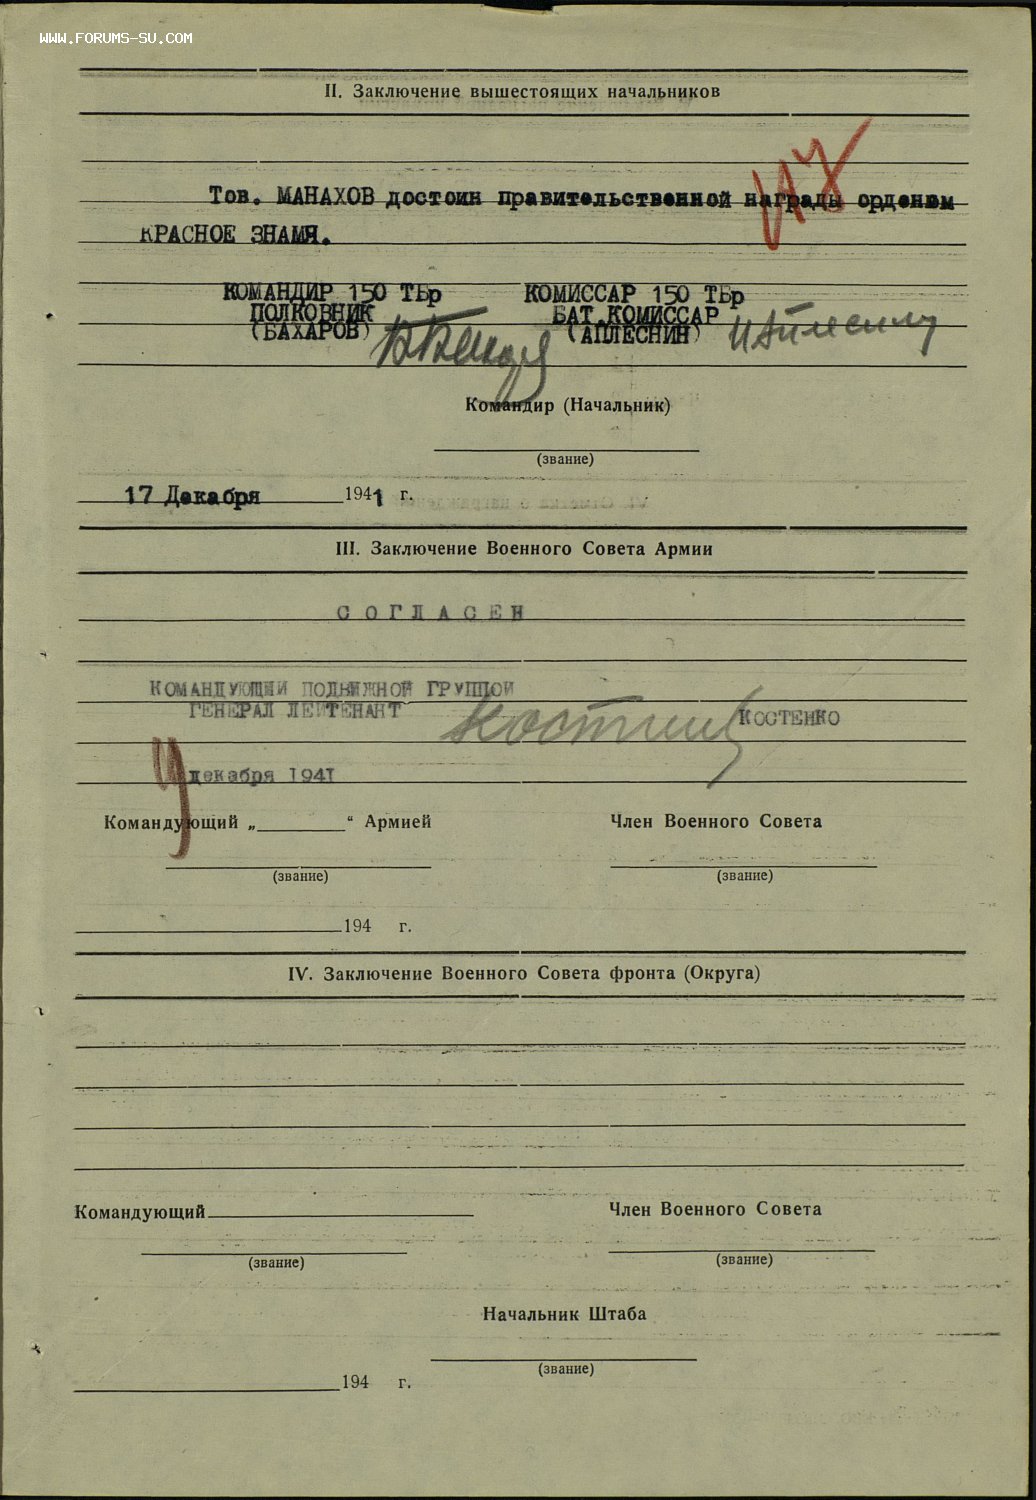 WWW.FORUMS-SU.COM
II. Заключение вышестоящих начальников
Тов. МАНАХОВ достоин правительственной награды орденом
КРАСНОЕ ЗНАМЯ.
КОМАНДИР 150 ТБр КОМИССАР 150 ТБр
ПОЛКОВНИК БАТ.КОМИССАР
(БАХАРОВ) (АПЛЕСНИН)
Командир (Начальник)
(звание)
17 Декабря 1941 г.
III. Заключение Военного Совета Армии
СОГЛАСЕН
КОМАНДУЮЩИЙ ПОДВИЖНОЙ ГРУППОЙ
ГЕНЕРАЛ ЛЕЙТЕНАНТ КОСТЕНКО
декабря 1941
Командующий „ “ Армией Член Военного Совета
(звание) (звание)
194 г.
IV. Заключение Военного Совета фронта (Округа)
Командующий Член Военного Совета
(звание) (звание)
Начальник Штаба
(звание)
194 г.